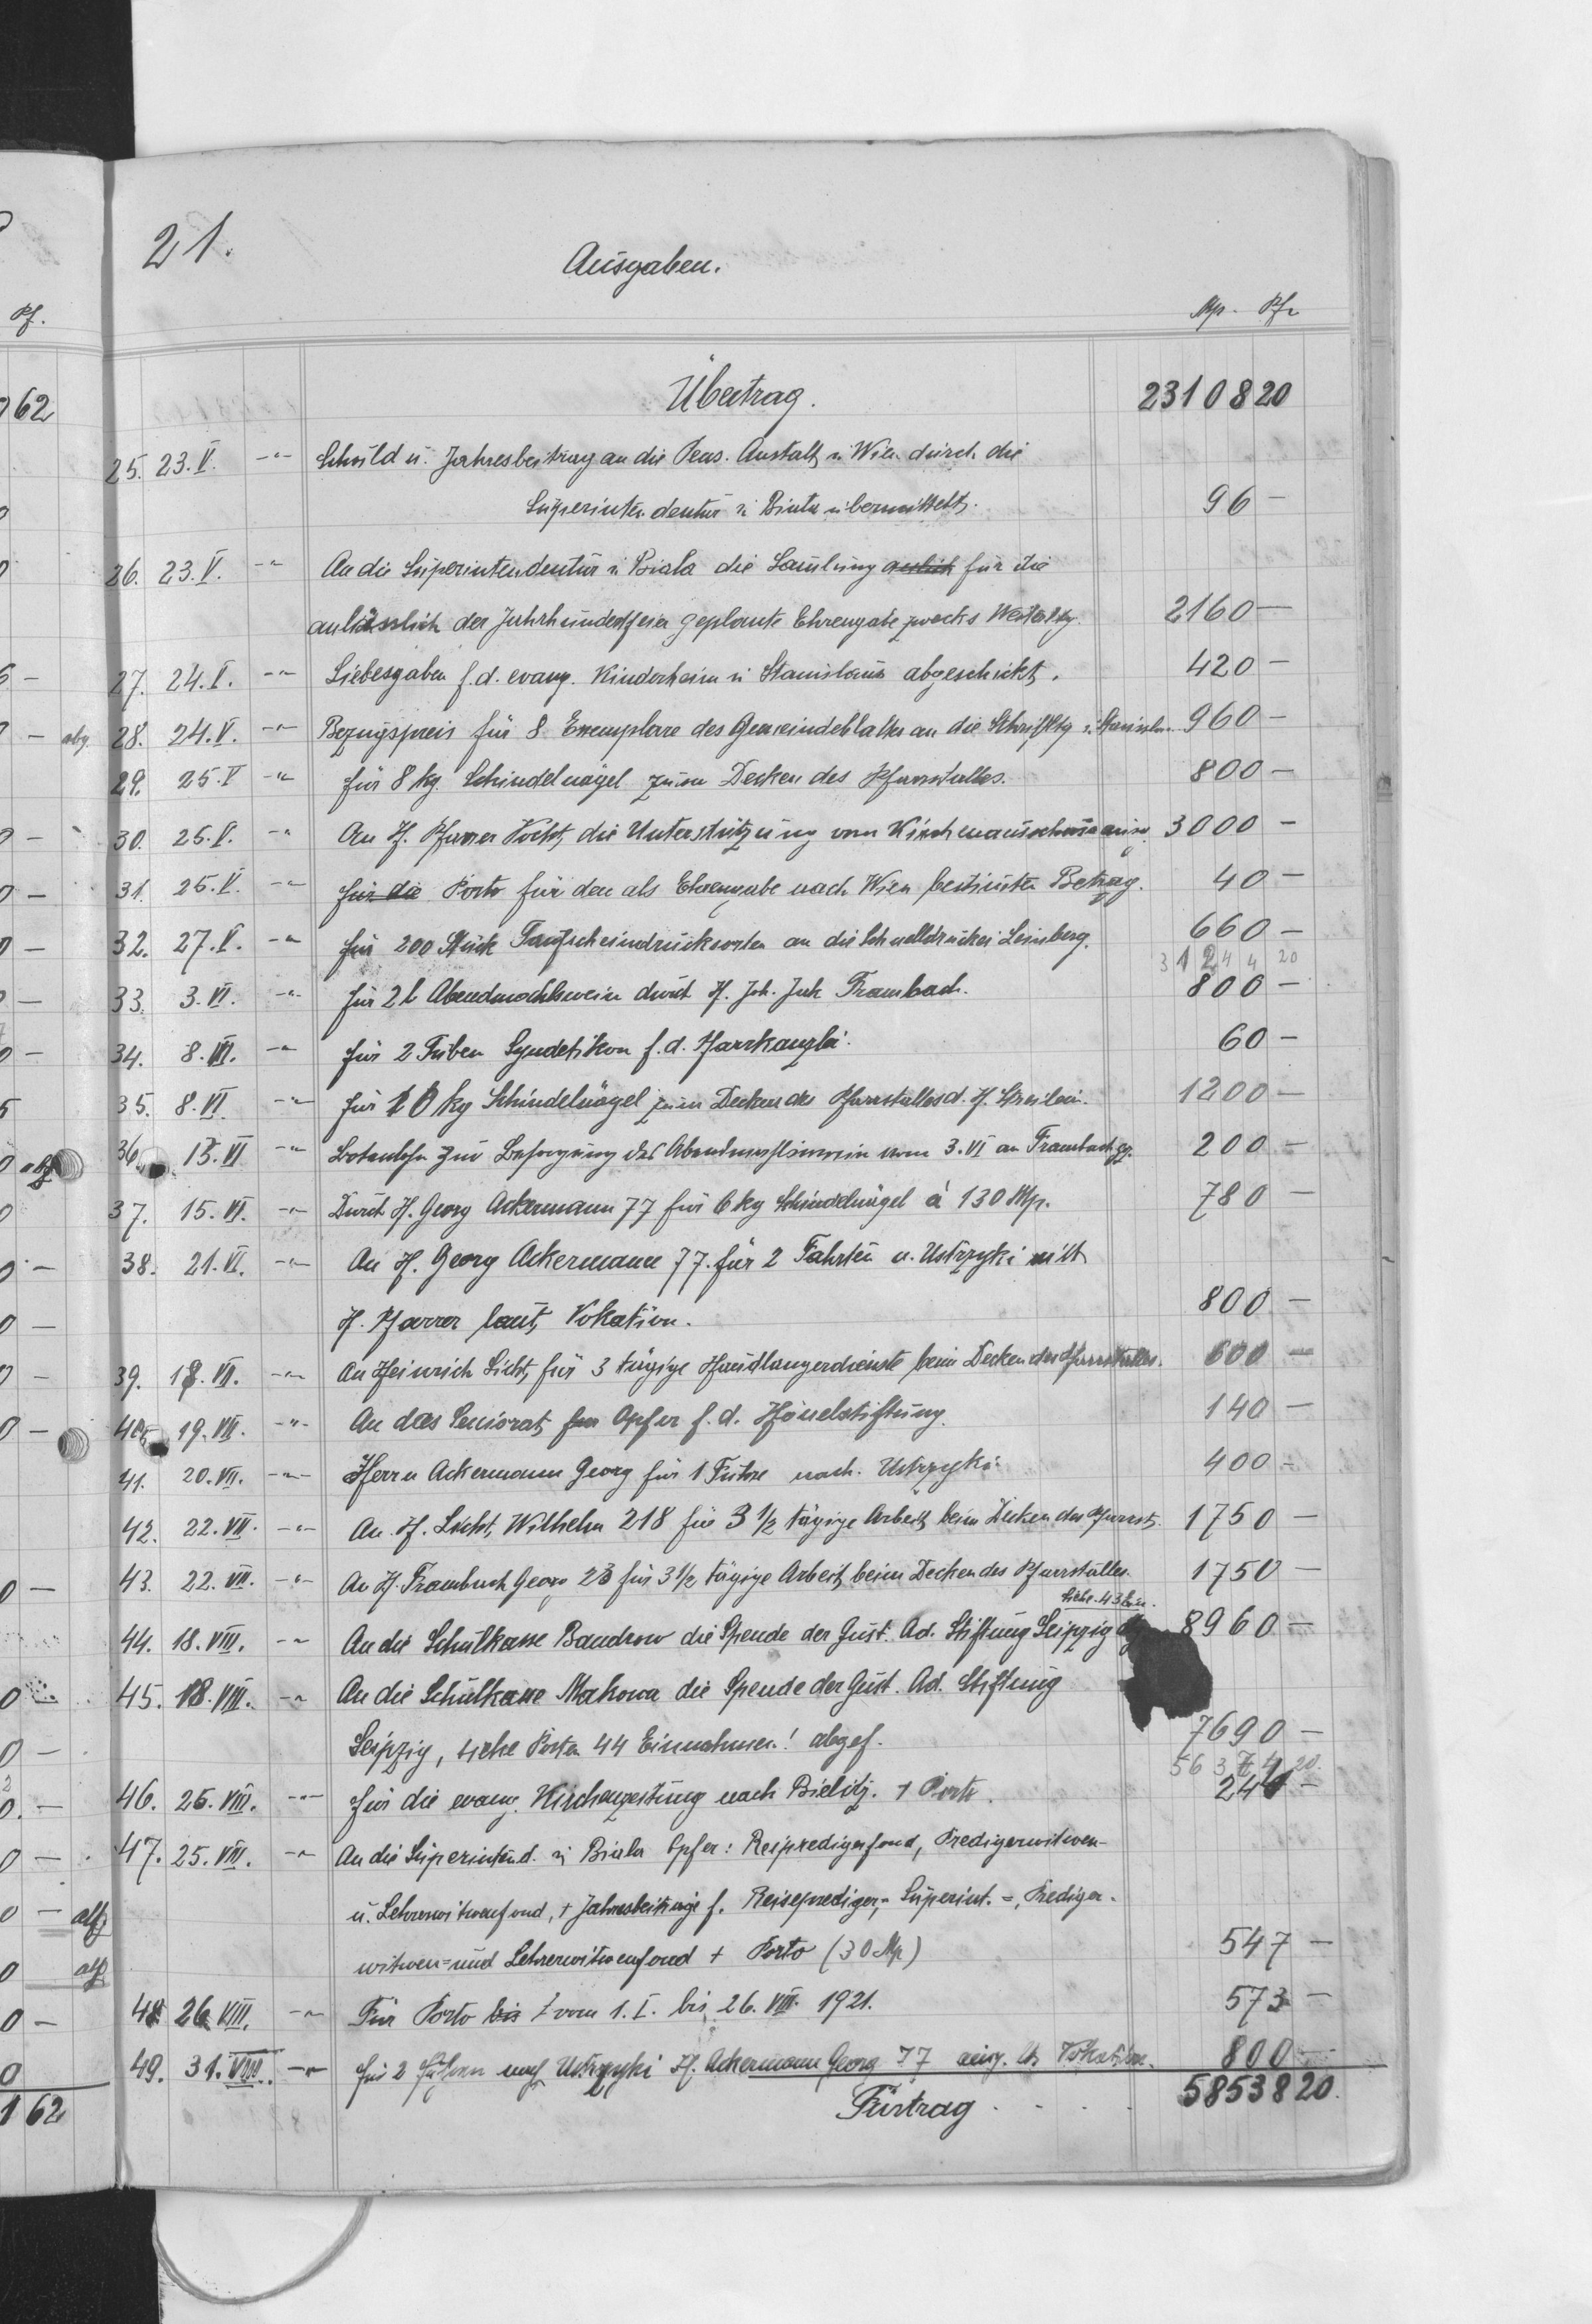 21.
Ausgaben.
Mp. Pf.
Übertrag. 23108 20
25. 23. V. -"- Schuld u. Jahresbeitrag an die Pens. Anstalt i. Wien durch die
Superintendentur i. Biala übermittelt. 96 -
26. 23. V. -"- An die Superintendentur i. Biala die Samlung für die
anlässlich der Jahrhundertfeier geplante Ehrengabe zwecks 2160 -
27. 24. V. -"- Liebesgaben f. d. evang. Kinderheim i. Stanislau abgeschickt. 420 -
28. 24. V. -"- Bezugspreis für 8 Exemplare des Gemeindeblattes an die Schriftltg i. Stanislau. 960 -
29. 25. V -"- für 8 kg Schindelnägel zum Decken des Pfarrstalles. 800 -
30. 25. V. -"- An H. Pfarrer die Unterstützung vom Kirchenausschuss 3000 -
31. 25. V. -"- für die Porto für den als Ehrengabe nach Wien bestimten Betrag. 40 -
32. 27. V. -"- für 200 Stück Taufscheindrucksorten an die Schnelldruckei Lemberg. 660 -
31244 20
33. 3. VI. -"- für 2 l Abendmahlswein durch H. Joh. Jak Trambach. 800 -
34. 8. VI. -"- für 2 Tuben Syndetikon f. d. Pfarrkanzlei. 60 -
35. 8. VI. -"- für 10 kg Schindelnägel zum Decken des Pfarrstalles d. H. 1200 -
36. 15. VI -"- Botenlohn zur Besorgung des Abendmahlswein vom 3. VI an Trambach 200 -
37. 15. VI. -"- Durch H. Georg Ackermann 77 für 6 kg Schindelnägel à 130 Mp. 780 -
38. 21. VI. -"- An H. Georg Ackermann 77. für 2 Fahrten n. Ustrzyki mit
H. Pfarrer laut Vokation. 800 -
39. 18. VII. -"- An Heinrich Licht, für 3 tägige Handlangerdienste beim Decken des Pfarrstalles. 600 -
40. 19. VII. -"- An das Seniorat Opfer f. d. Hönelstiftung. 140 -
41. 20. VII. -"- Herrn Ackermann Georg für 1 Fuhre nach Ustrzyki 400 -
42. 22. VII. -"- An H. Licht, Wilhelm 218 für 3 1/2 tägige Arbeit beim Decken des Pfarrst. 1750 -
43. 22. VII. -"- An H. Trambach Georg 23 für 3 1/2 tägige Arbeit beim Decken des Pfarrstalles. 1750 -
siehe 43 Ein.
44. 18. VIII. -"- An die Schulkasse Bandrow die Spende der Gust. Ad. Stiftung Leipzig 8960 -
45. 18. VIII. -"- An die Schulkasse Makowa die Spende der Gust. Ad. Stiftung
Leipzig, siehe Posten 44 Einnahmen! abgef. 7690 -
56374 20.
46. 25. VIII. -"- für die evang. Kirchenzeitung nach Bielitz. + Porto. 244 -
47. 25. VIII. -"- An die Superintend. i. Biala Opfer: Reispredigerfond, Predigerwitwen-
u. Lehrerwitwenfond, + Jahresbeiträge f. Reiseprediger-, Superint. =, Prediger-
witwen= und Lehrerwitwenfond + Porto (30 Mp) 547 -
48 26 VIII. -"- Für Porto bis vom 1. I. bis 26. VIII. 1921. 573 -
49. 31. VIII. -"- für 2 Fuhren nach Ustrzyki H. Ackermann Georg 77 800 -
Fürtrag . . . . 58538 20.
Pf.
62
abg
162